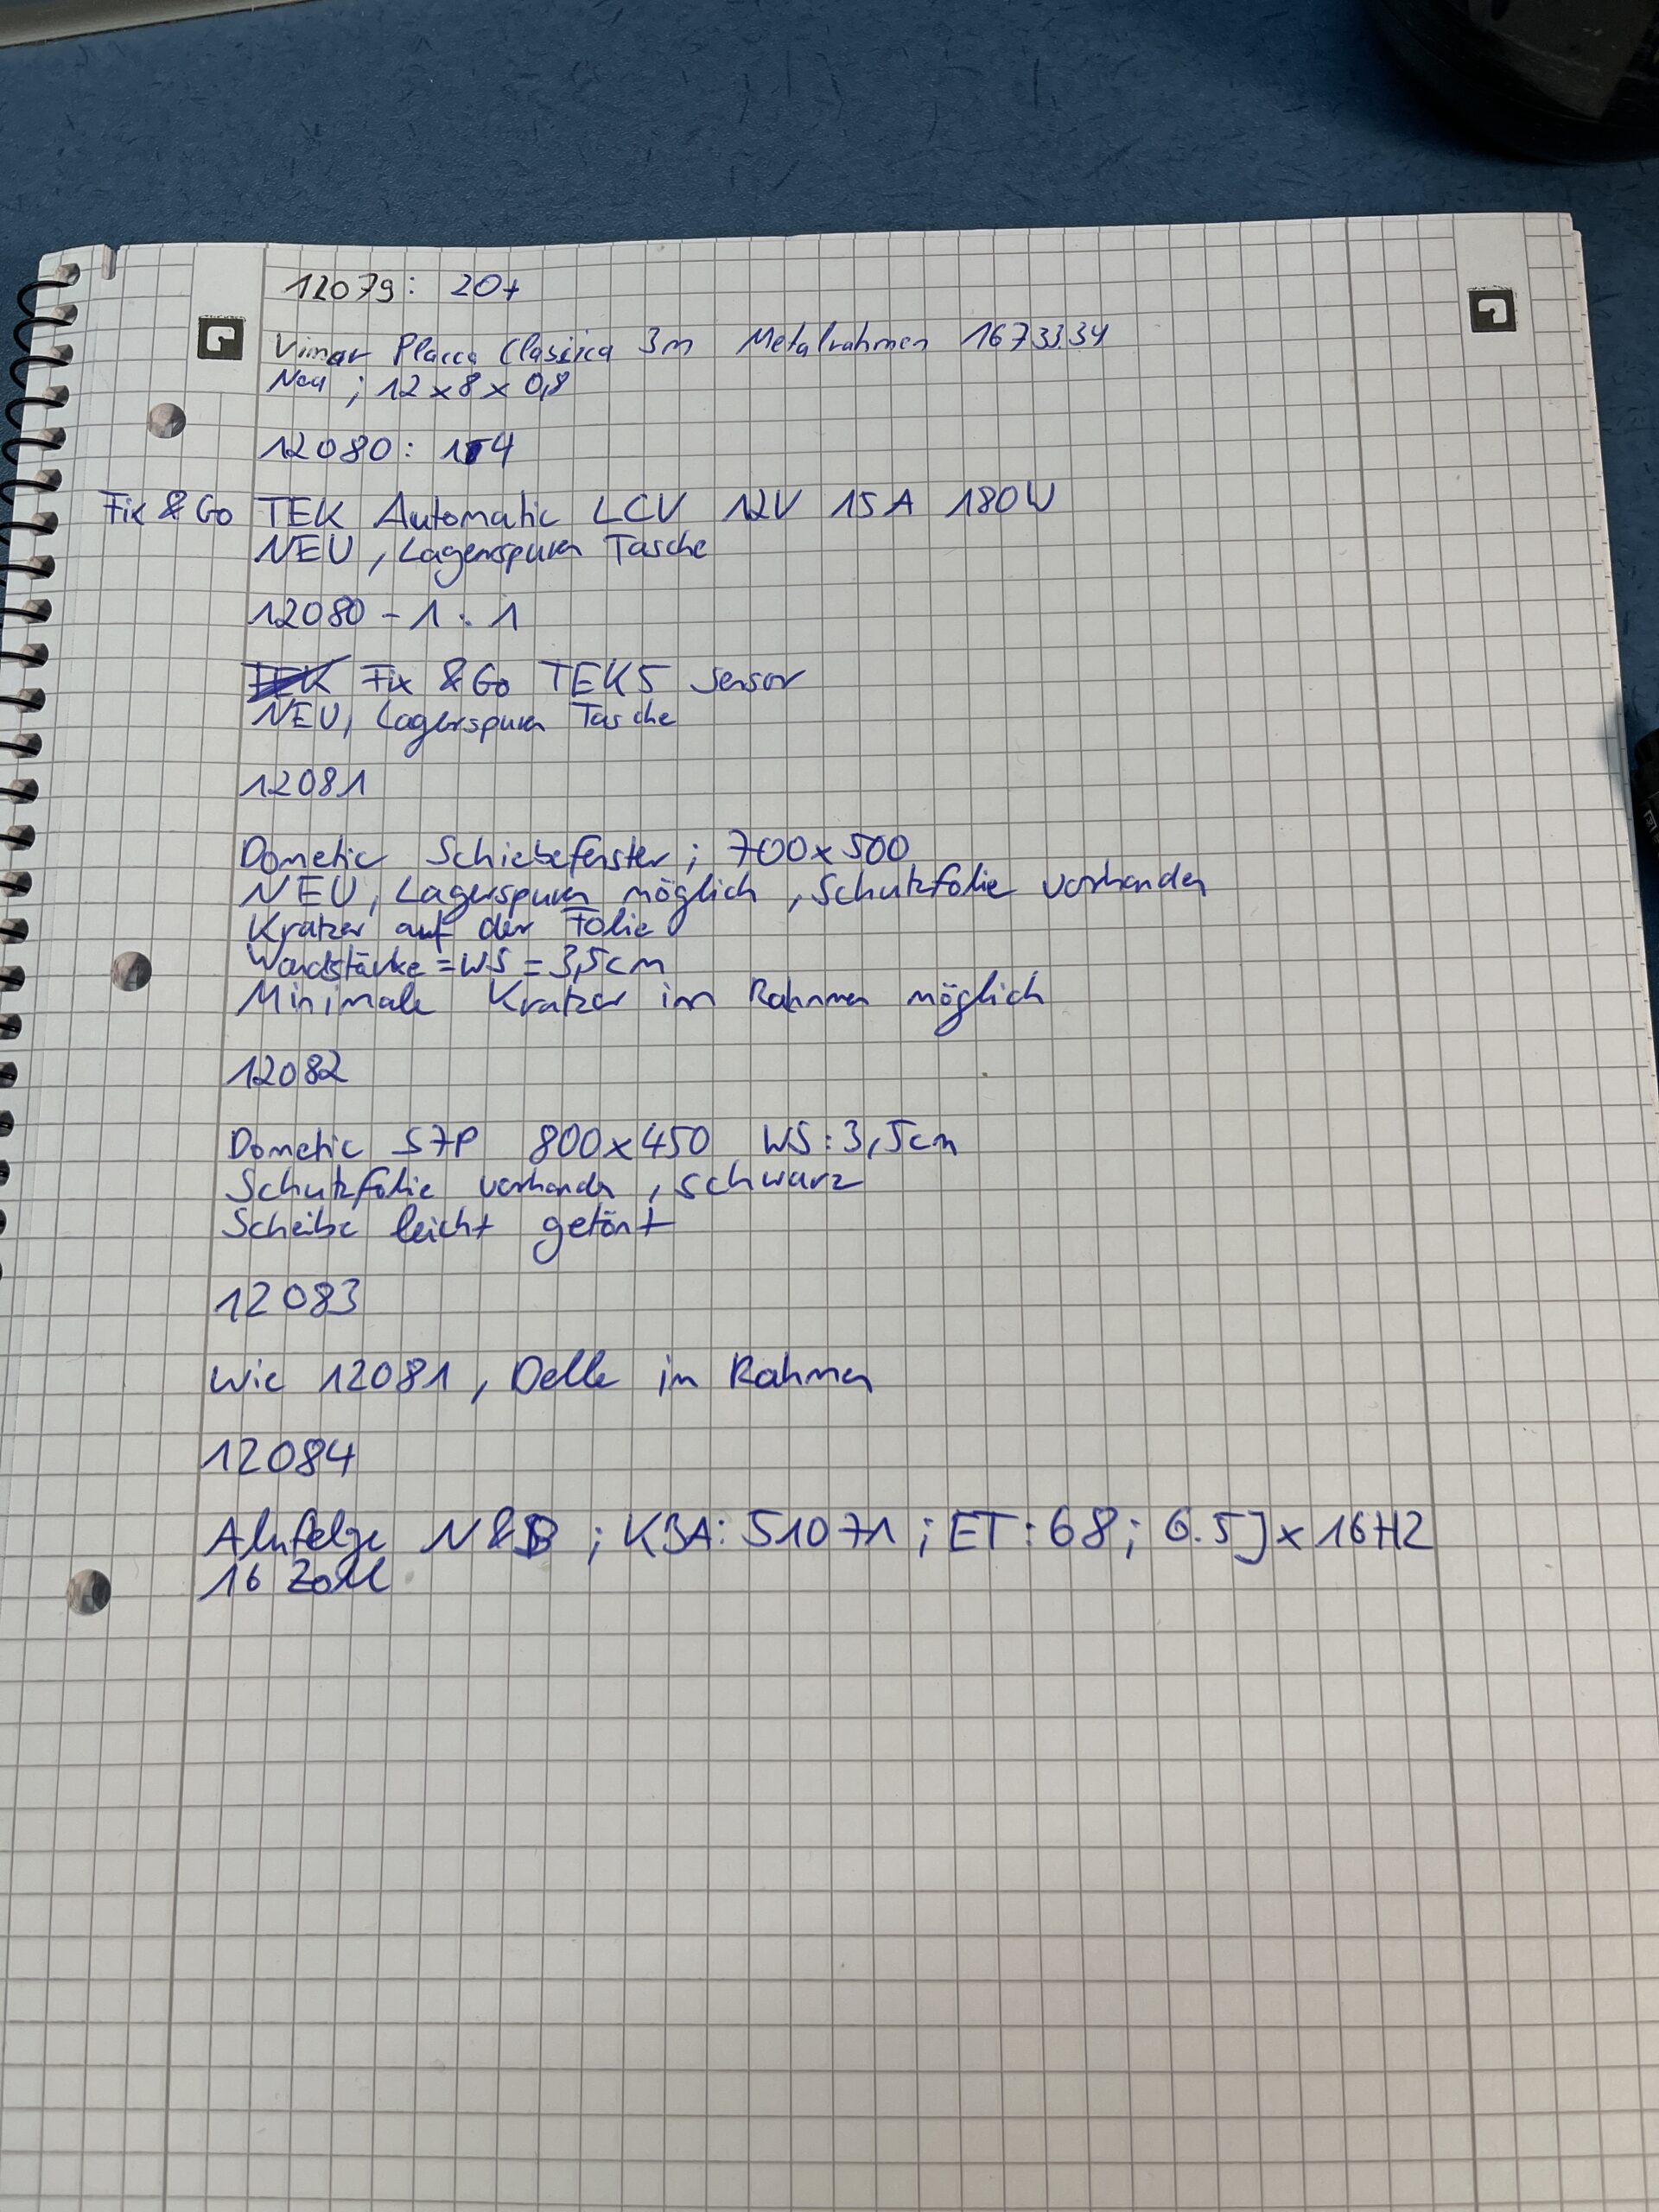 12079: 20+
Vimar Placca Classica 3m Metalrahmen 16733.34
Neu ; 12 x 8 x 0,8
12080: 14
Fix & Go TEK Automatic LCV 12V 15A 180W
NEU, Lagerspuren Tasche
12080 - 1 : 1
TEK Fix & Go TEK5 Sensor
NEU, Lagerspuren Tasche
12081
Dometic Schiebefenster ; 700x500
NEU, Lagerspuren möglich, Schutzfolie vorhanden
Kratzer auf der Folie
Wandstärke = WS = 3,5cm
Minimale Kratzer im Rahmen möglich
12082
Dometic S7P 800x450 WS: 3,5cm
Schutzfolie vorhanden, schwarz
Scheibe leicht getönt
12083
Wie 12081, Delle im Rahmen
12084
Alufelge N&B ; KBA: 51071 ; ET: 68 ; 6.5J x 16H2
16 Zoll